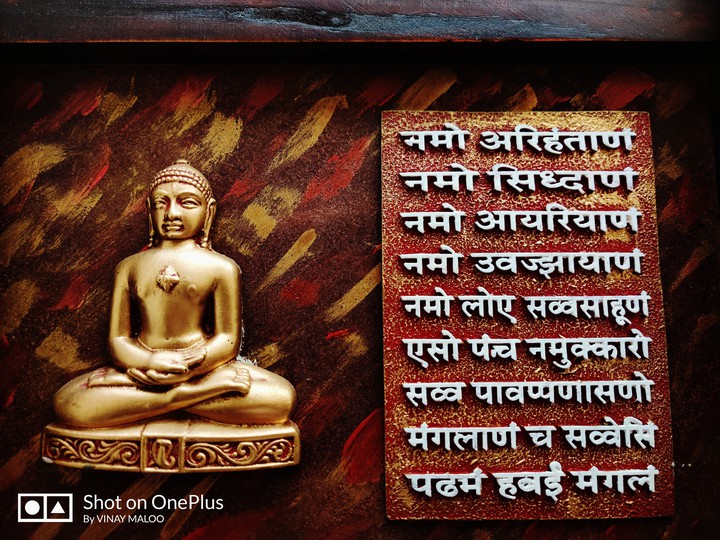 नमो अरिहंताणं
नमो सिध्दाणं
नमो आयरियाणं
नमो उवज्झायाणं
नमो लोए सव्वसाहूणं
एसो पंच नमुक्कारो
सव्व पावप्पणासणो
मंगलाणं च सव्वेसिं
पढमं हवई मंगलं
Shot on OnePlus
By VINAY MALOO